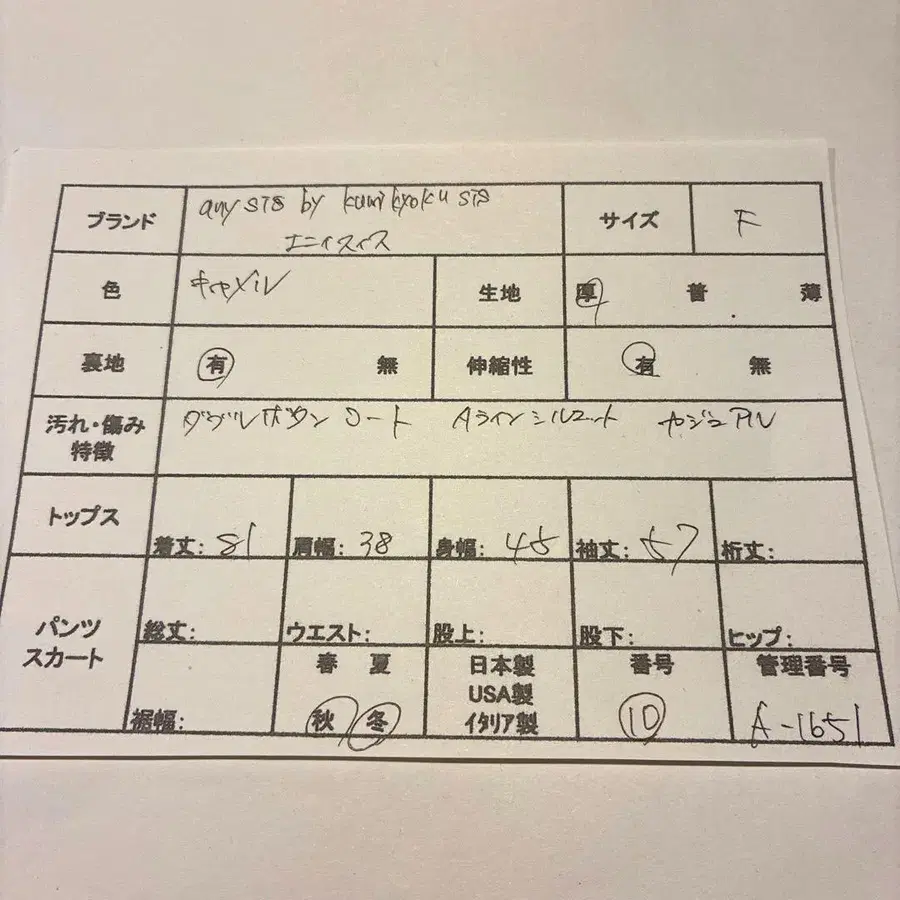 ブランド any sis by kumikyoku sis サイズ F
エニィスィス
色 キャメル 生地 厚 普 薄
裏地 有 無 伸縮性 有 無
汚れ・傷み ダブルボタンコート Aラインシルエット カジュアル
特徴
トップス
着丈: 81 肩幅: 38 身幅: 45 袖丈: 57 裄丈:
パンツ
スカート
総丈: ウエスト: 股上: 股下: ヒップ:
春 夏 日本製 番号 管理番号
USA製
裾幅: 秋 冬 イタリア製 10 A-1651